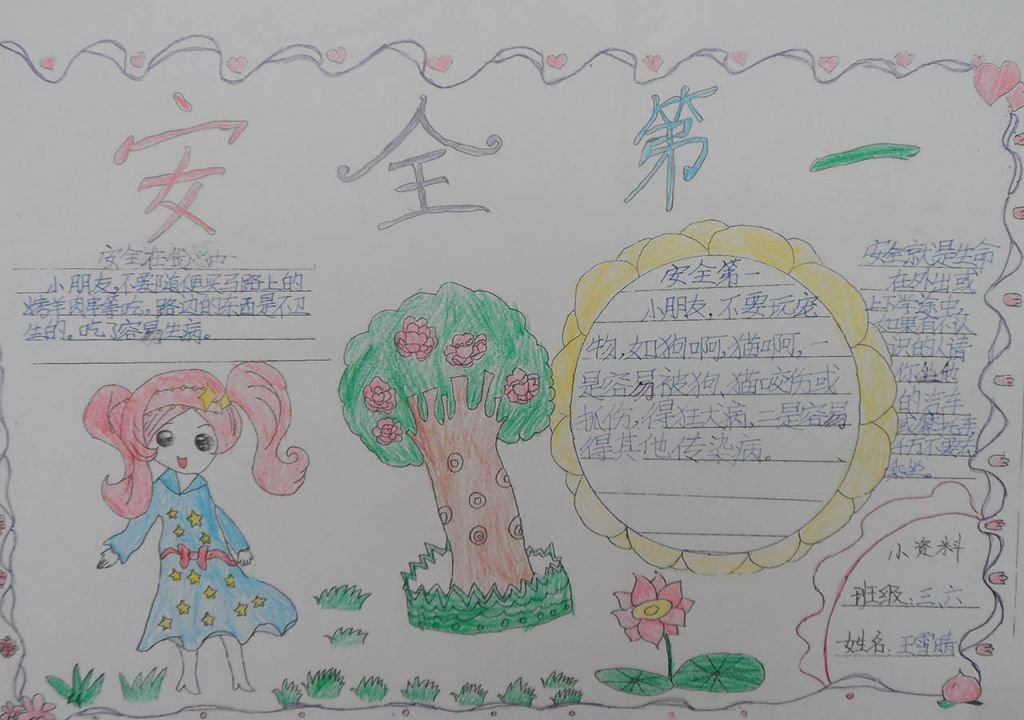 安全第一
安全在我心中
小朋友,不要随便买马路上的
烤羊肉串等吃,路边的东西是不卫
生的。吃了容易生病。
安全第一
小朋友,不要玩宠
物,如狗啊,猫啊,一
是容易被狗、猫咬伤或
抓伤,得狂犬病,二是容易
得其他传染病。
安全就是生命
在外出或
上下学途中,
如果有不认
识的人请
你坐他
的汽车
或摩托车
千万不要去
乘坐。
小资料
班级:三、六
姓名:王雪晴